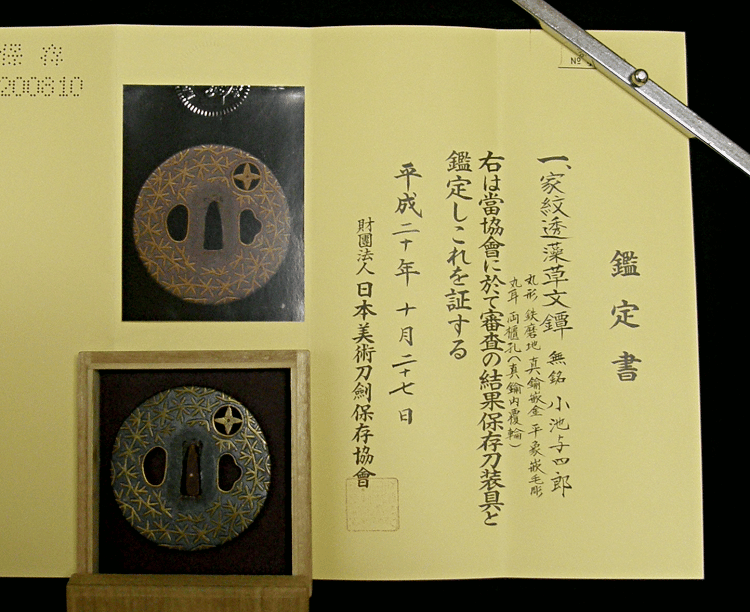 鑑定書
一、家紋透藻草文鐔 無銘 小池与四郎
丸形 鉄磨地 真鍮嵌金 平象嵌毛彫
丸耳 両櫃孔(真鍮内覆輪)
右は當協會に於て審査の結果保存刀装具と
鑑定しこれを証する
平成二十年 十月二十七日
財團法人 日本美術刀剣保存協會
No
保存
200810